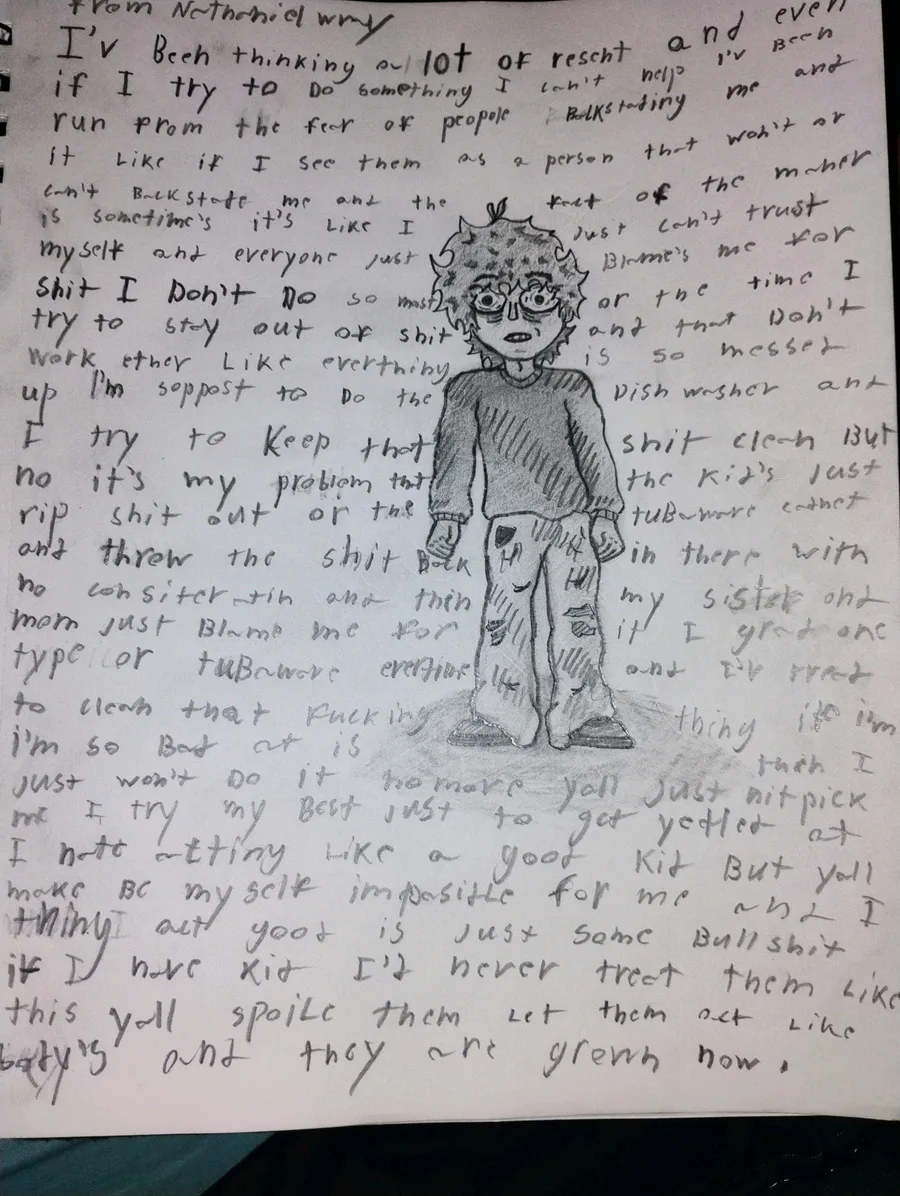 From Nathaniel wray
I'v Been thinking a lot of resent and even
if I try to Do something I can't help I'v Been
run from the fear of peopole Backstabing me and
it Like if I see them as a person that won't or
can't Backstabe me and the fact of the mater
is sometime's it's Like I just can't trust
myself and everyone just Blame's me for
shit I Don't Do so most or the time I
try to stay out of shit and that Don't
work ether Like everthing is so messed
up I'm soppost to Do the Dish washer and
I try to Keep that shit clean But
no it's my problem that the Kid's Just
rip shit out or the tuBaware cabnet
and threw the shit Back in there with
no and then my sister and
mom just Blame me for it I grab one
type or tuBaware evertime and I'v tred
to clean that Fucking thing if im
I'm so Bad at is then I
just won't Do it no more yall just nit pick
me I try my Best just to get yelled at
I hate acting Like a good Kid But yall
make Be myself impasible for me and I
thing act good is just some Bullshit
if I have Kid I'd never treat them Like
this yall spoile them Let them act Like
baby's and they are grewn now.